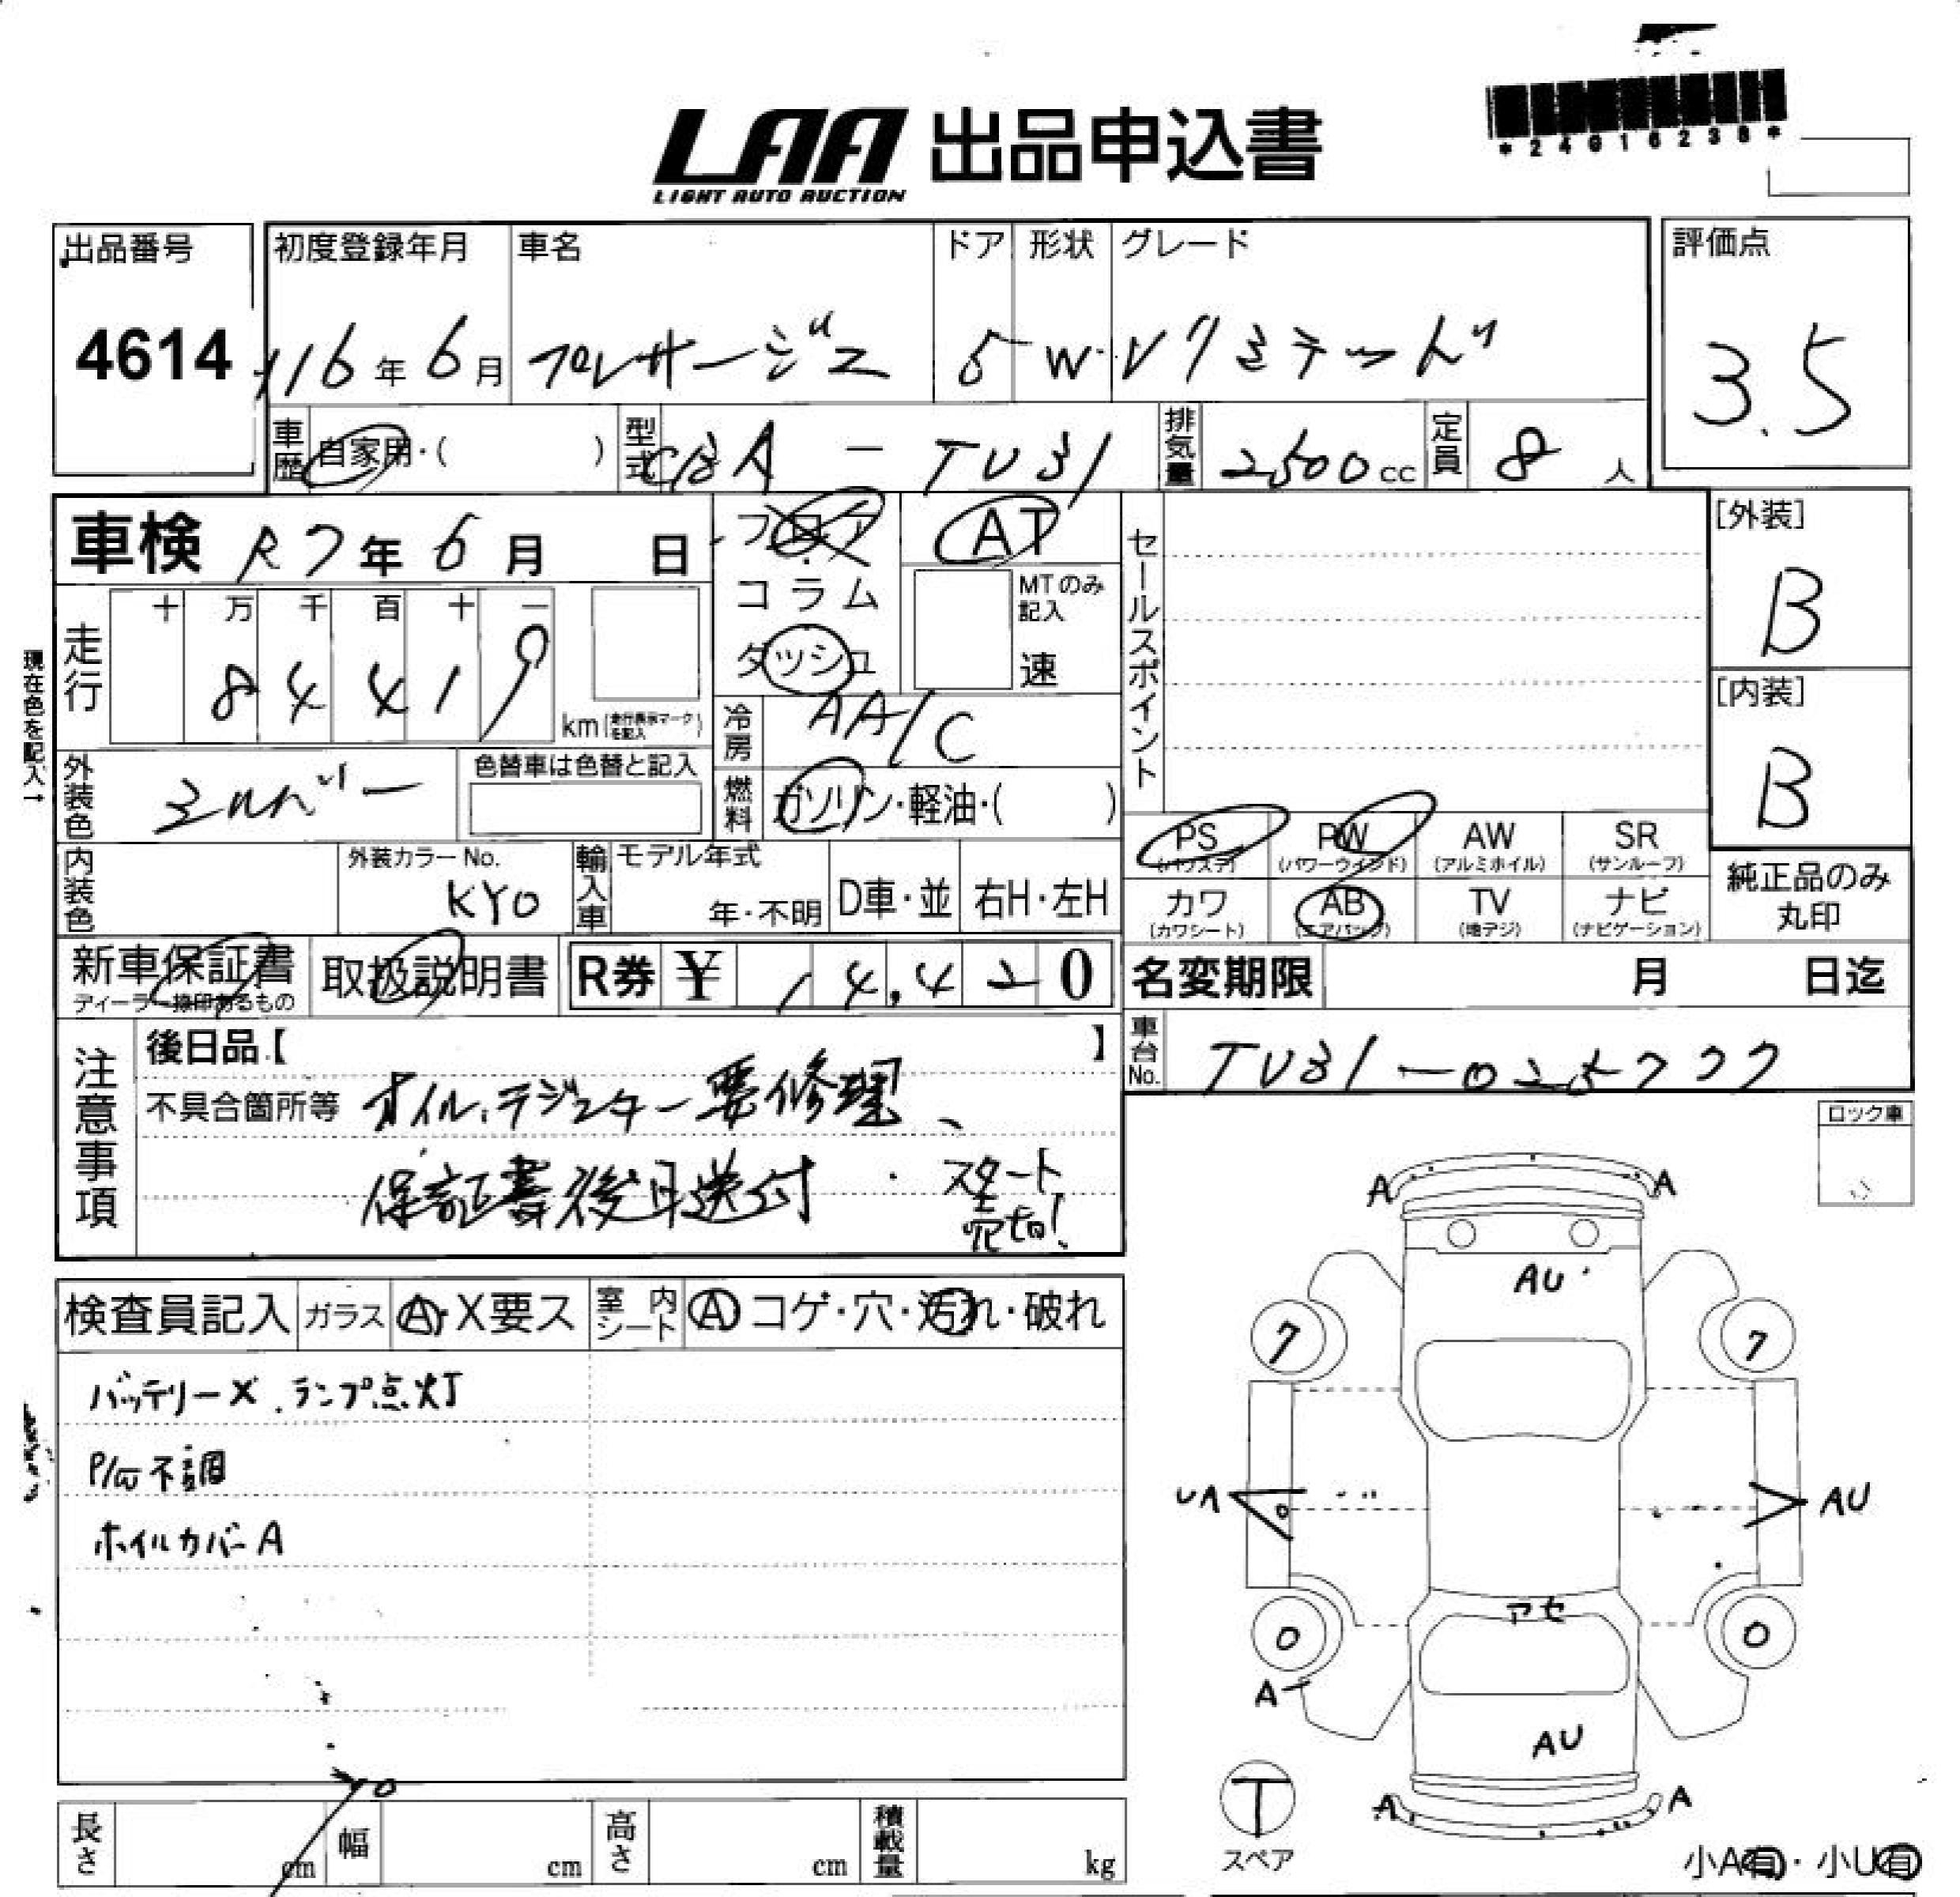 LAA 出品申込書
LIGHT AUTO AUCTION
*24016238*
出品番号
4614
初度登録年月
H16年6月
車名
プレサージュ
ドア
5
形状
W
グレード
Vリミテッド
評価点
3.5
車歴
自家用・( )
型式
CBA-TU31
排気量
2500cc
定員
8人
車検 R7年6月 日
フロア
コラム
ダッシュ
AT
MTのみ記入
速
セールスポイント
[外装]
B
[内装]
B
現在色を記入→
走行
十 万 千 百 十 一
84419
km(走行表示マークを記入)
冷房
AA/C
外装色
シルバー
色替車は色替と記入
燃料
ガソリン・軽油・( )
PS
(パワステ)
PW
(パワーウィンド)
AW
(アルミホイル)
SR
(サンルーフ)
カワ
(カワシート)
AB
(エアバック)
TV
(地デジ)
ナビ
(ナビゲーション)
純正品のみ
丸印
内装色
外装カラーNo.
KY0
輸入車
モデル年式
年・不明
D車・並
右H・左H
新車保証書
ディーラー捺印あるもの
取扱説明書
R券 ¥ 14,420
名変期限 月 日迄
車台No.
TU31-025777
注意事項
後日品【 】
不具合箇所等 オイル、デジスター要修理、
保証書後日送付 . スタート
売切!
ロック車
検査員記入
ガラス
A・X要ス
室内シート
A コゲ・穴・汚れ・破れ
バッテリーX.ランプ点灯
P/W不調
ホイルカバーA
A A
AU
7 7
UA AU
アセ
0 0
A
AU
A A
T
スペア
小A有・小U有
長さ cm
幅 cm
高さ cm
積載量 kg